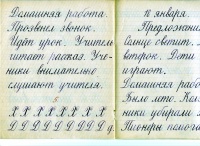 Домашняя работа.
Прозвенел звонок.
Идёт урок. Учитель
читает рассказ. Уче-
ники внимательно
слушают учителя.
5
Х Х Х Х Х Х Х Х
10 января.
Предложение
Солнце светит.
ветерок. Дети
играют.
Домашняя работа
Было лето.
ники убирали
Пионеры помога